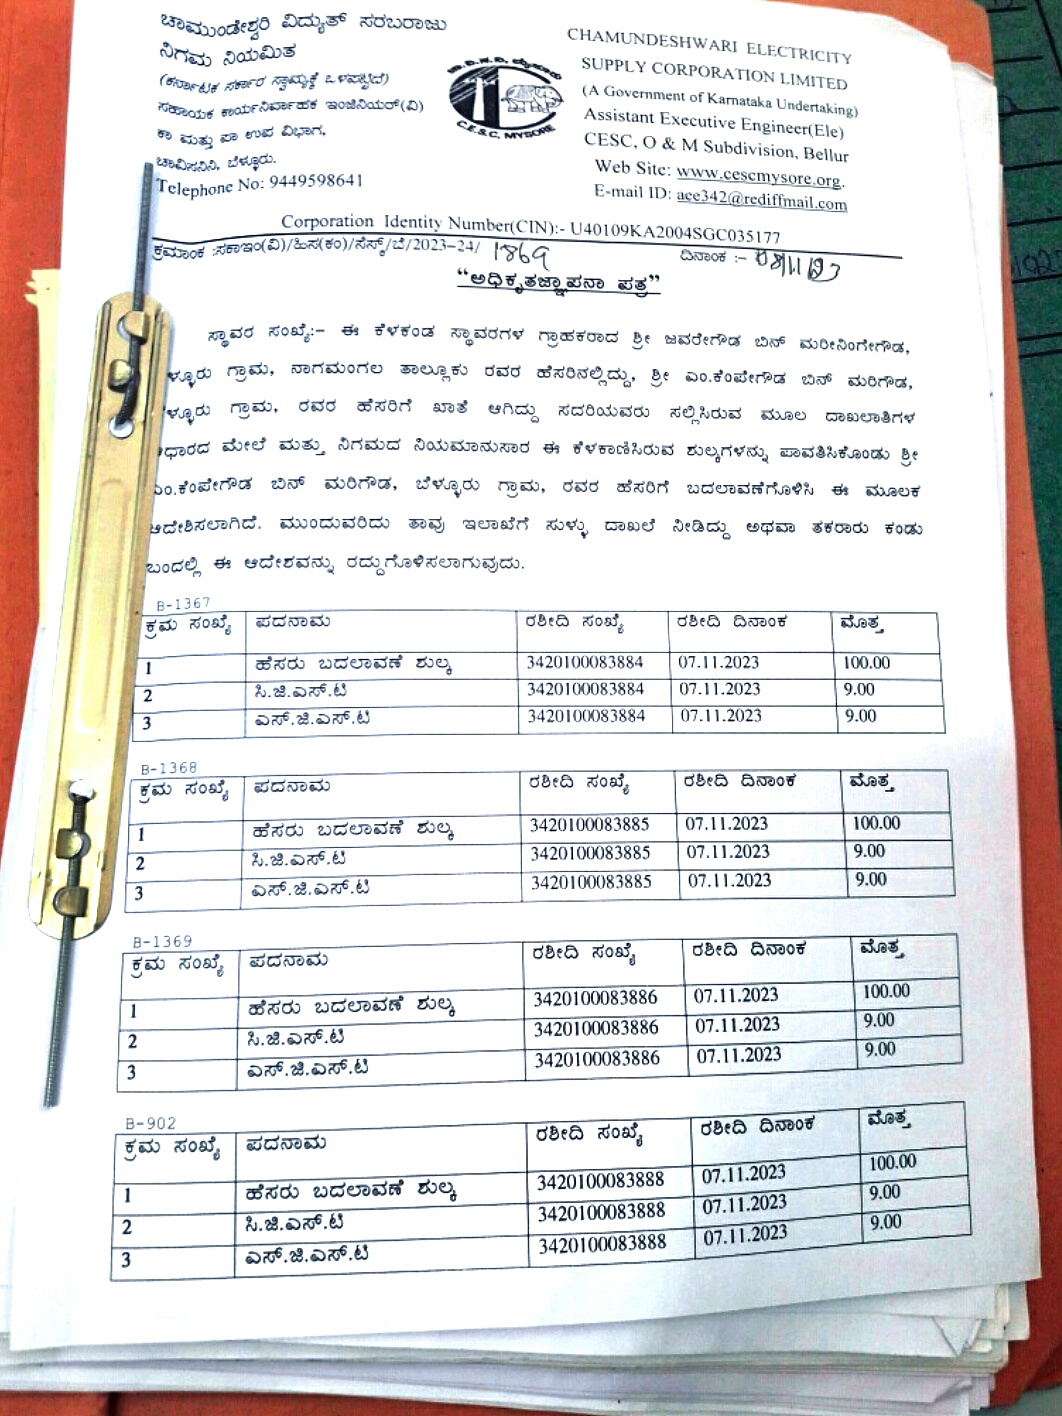 ಚಾಮುಂಡೇಶ್ವರಿ ವಿದ್ಯುತ್ ಸರಬರಾಜು
ನಿಗಮ ನಿಯಮಿತ
(ಕರ್ನಾಟಕ ಸರ್ಕಾರ ಸ್ವಾಮ್ಯಕ್ಕೆ ಒಳಪಟ್ಟಿದೆ)
ಸಹಾಯಕ ಕಾರ್ಯನಿರ್ವಾಹಕ ಇಂಜಿನಿಯರ್(ವಿ)
ಕಾ ಮತ್ತು ಪಾ ಉಪ ವಿಭಾಗ,
ಚಾವಿಸನಿನಿ, ಬೆಳ್ಳೂರು.
Telephone No: 9449598641
ಚಾ.ವಿ.ಸ.ನಿ. ಮೈಸೂರು
C.E.S.C. MYSORE
CHAMUNDESHWARI ELECTRICITY
SUPPLY CORPORATION LIMITED
(A Government of Karnataka Undertaking)
Assistant Executive Engineer(Ele)
CESC, O & M Subdivision, Bellur
Web Site: www.cescmysore.org.
E-mail ID: aee342@rediffmail.com
Corporation Identity Number(CIN):- U40109KA2004SGC035177
ಕ್ರಮಾಂಕ :ಸಕಾಇಂ(ವಿ)/ಹಿಸ(ಕಂ)/ಸೆಸ್ಕ್/ಬೆ/2023-24/ 1869 ದಿನಾಂಕ :- 08/11/23
“ಅಧಿಕೃತಜ್ಞಾಪನಾ ಪತ್ರ”
ಸ್ಥಾವರ ಸಂಖ್ಯೆ:- ಈ ಕೆಳಕಂಡ ಸ್ಥಾವರಗಳ ಗ್ರಾಹಕರಾದ ಶ್ರೀ ಜವರೇಗೌಡ ಬಿನ್ ಮರೀನಿಂಗೇಗೌಡ,
ಳ್ಳೂರು ಗ್ರಾಮ, ನಾಗಮಂಗಲ ತಾಲ್ಲೂಕು ರವರ ಹೆಸರಿನಲ್ಲಿದ್ದು, ಶ್ರೀ ಎಂ.ಕೆಂಪೇಗೌಡ ಬಿನ್ ಮರಿಗೌಡ,
ಳ್ಳೂರು ಗ್ರಾಮ, ರವರ ಹೆಸರಿಗೆ ಖಾತೆ ಆಗಿದ್ದು ಸದರಿಯವರು ಸಲ್ಲಿಸಿರುವ ಮೂಲ ದಾಖಲಾತಿಗಳ
ಆಧಾರದ ಮೇಲೆ ಮತ್ತು ನಿಗಮದ ನಿಯಮಾನುಸಾರ ಈ ಕೆಳಕಾಣಿಸಿರುವ ಶುಲ್ಕಗಳನ್ನು ಪಾವತಿಸಿಕೊಂಡು ಶ್ರೀ
ಎಂ.ಕೆಂಪೇಗೌಡ ಬಿನ್ ಮರಿಗೌಡ, ಬೆಳ್ಳೂರು ಗ್ರಾಮ, ರವರ ಹೆಸರಿಗೆ ಬದಲಾವಣೆಗೊಳಿಸಿ ಈ ಮೂಲಕ
ಆದೇಶಿಸಲಾಗಿದೆ. ಮುಂದುವರಿದು ತಾವು ಇಲಾಖೆಗೆ ಸುಳ್ಳು ದಾಖಲೆ ನೀಡಿದ್ದು ಅಥವಾ ತಕರಾರು ಕಂಡು
ಬಂದಲ್ಲಿ ಈ ಆದೇಶವನ್ನು ರದ್ದುಗೊಳಿಸಲಾಗುವುದು.
B-1367
ಕ್ರಮ ಸಂಖ್ಯೆ ಪದನಾಮ ರಶೀದಿ ಸಂಖ್ಯೆ ರಶೀದಿ ದಿನಾಂಕ ಮೊತ್ತ
1 ಹೆಸರು ಬದಲಾವಣೆ ಶುಲ್ಕ 3420100083884 07.11.2023 100.00
2 ಸಿ.ಜಿ.ಎಸ್.ಟಿ 3420100083884 07.11.2023 9.00
3 ಎಸ್.ಜಿ.ಎಸ್.ಟಿ 3420100083884 07.11.2023 9.00
B-1368
ಕ್ರಮ ಸಂಖ್ಯೆ ಪದನಾಮ ರಶೀದಿ ಸಂಖ್ಯೆ ರಶೀದಿ ದಿನಾಂಕ ಮೊತ್ತ
1 ಹೆಸರು ಬದಲಾವಣೆ ಶುಲ್ಕ 3420100083885 07.11.2023 100.00
2 ಸಿ.ಜಿ.ಎಸ್.ಟಿ 3420100083885 07.11.2023 9.00
3 ಎಸ್.ಜಿ.ಎಸ್.ಟಿ 3420100083885 07.11.2023 9.00
B-1369
ಕ್ರಮ ಸಂಖ್ಯೆ ಪದನಾಮ ರಶೀದಿ ಸಂಖ್ಯೆ ರಶೀದಿ ದಿನಾಂಕ ಮೊತ್ತ
1 ಹೆಸರು ಬದಲಾವಣೆ ಶುಲ್ಕ 3420100083886 07.11.2023 100.00
2 ಸಿ.ಜಿ.ಎಸ್.ಟಿ 3420100083886 07.11.2023 9.00
3 ಎಸ್.ಜಿ.ಎಸ್.ಟಿ 3420100083886 07.11.2023 9.00
B-902
ಕ್ರಮ ಸಂಖ್ಯೆ ಪದನಾಮ ರಶೀದಿ ಸಂಖ್ಯೆ ರಶೀದಿ ದಿನಾಂಕ ಮೊತ್ತ
1 ಹೆಸರು ಬದಲಾವಣೆ ಶುಲ್ಕ 3420100083888 07.11.2023 100.00
2 ಸಿ.ಜಿ.ಎಸ್.ಟಿ 3420100083888 07.11.2023 9.00
3 ಎಸ್.ಜಿ.ಎಸ್.ಟಿ 3420100083888 07.11.2023 9.00